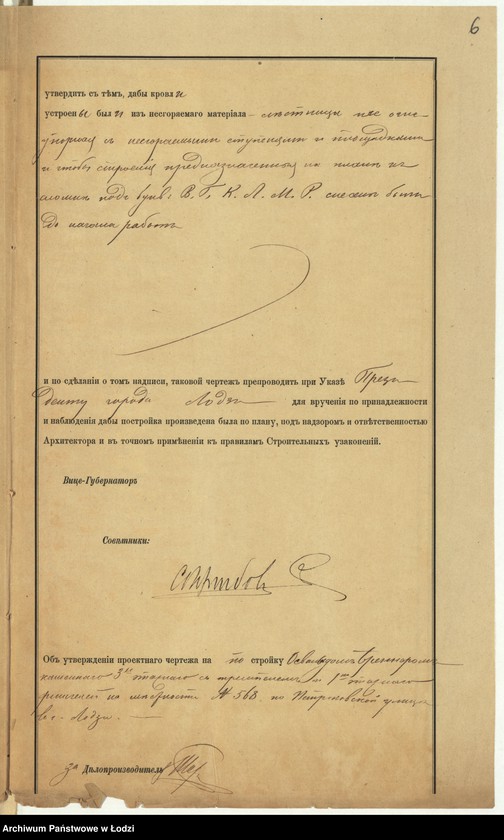 6
утвердить съ тѣмъ, дабы кровл и
устроен ы был и изъ несгораемаго матеріала – лѣстницы
съ несгораемыми ступенями и площадками
и чтобы строенія предназначенныя на планѣ къ
подъ букв: В. Г. К. Л. М. Р. были
до начала работъ
и по сдѣланіи о томъ надписи, таковой чертежъ препроводить при Указѣ Прези-
денту города Лодзи для врученія по принадлежности
и наблюденія дабы постройка произведена была по плану, подъ надзоромъ и отвѣтственностью
Архитектора и въ точномъ примѣненіи къ правиламъ Строительныхъ узаконеній.
Вице-Губернаторъ
Совѣтники:
Объ утвержденіи проектнаго чертежа на по стройку
каменнаго 3хъ этажнаго съ и 1но этажнаго
№ 568 по Петроковской улицѣ
въ г. Лодзи. —
За Дѣлопроизводитель
Archiwum Państwowe w Łodzi